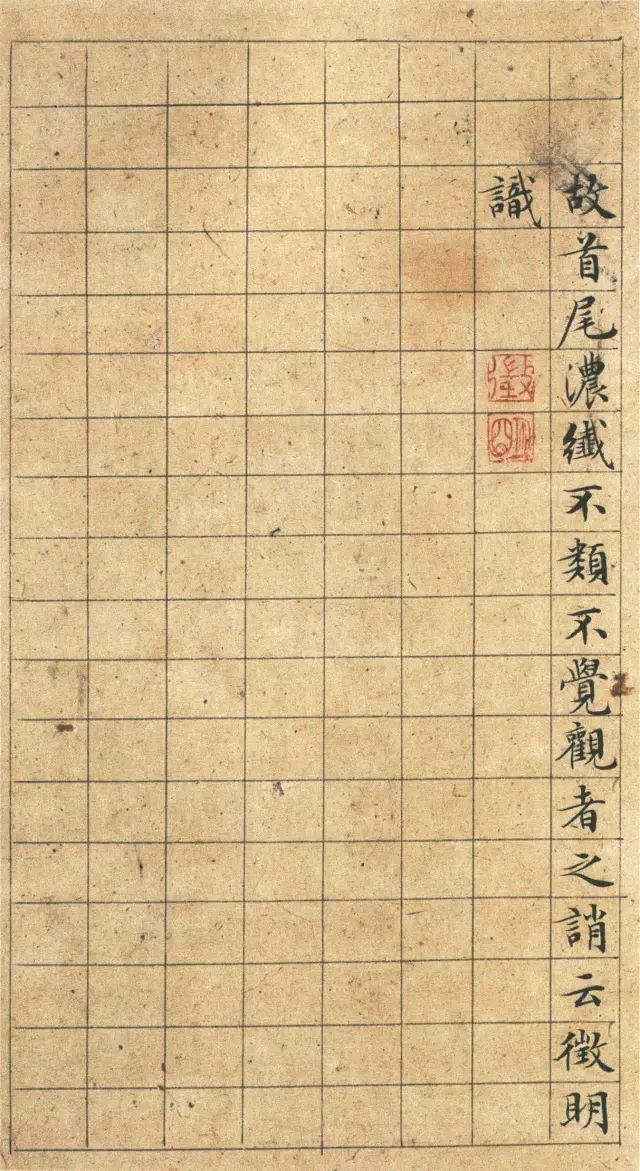 故首尾濃纖不類不覺觀者之誚云徵明
識
徵
明